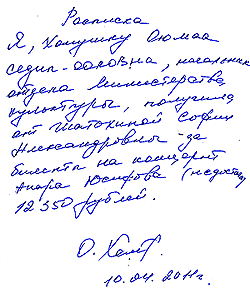 Расписка
Я, Хомушку Оюмаа
Седип-ооловна, начальник
отдела Министерства
культуры, получила
от Шатохиной Софии
Александровны - за
билеты на концерт
Юсифова (недостача)
12 350 рублей.
10.04.2011г.